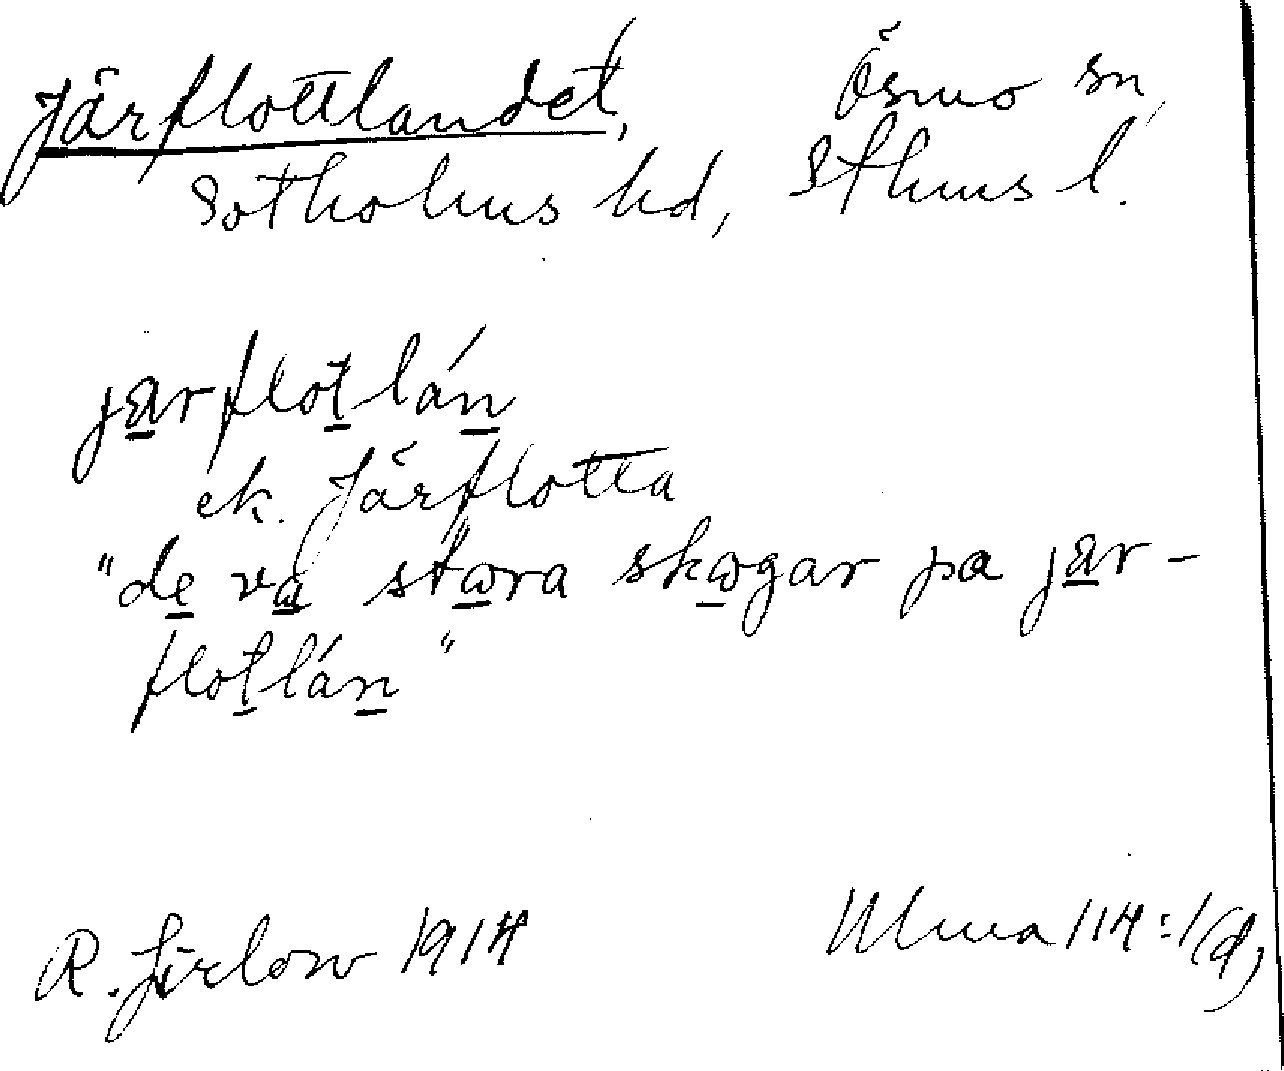 Järflottlandet, Ösmo sn,
Sotholms hd, Sthms l.
jarflotlán
ek. Järflotta
"de va stωra skωgar pa jar-
flotlán"
R. Jirlow 1914
Ulma 114:1(d)